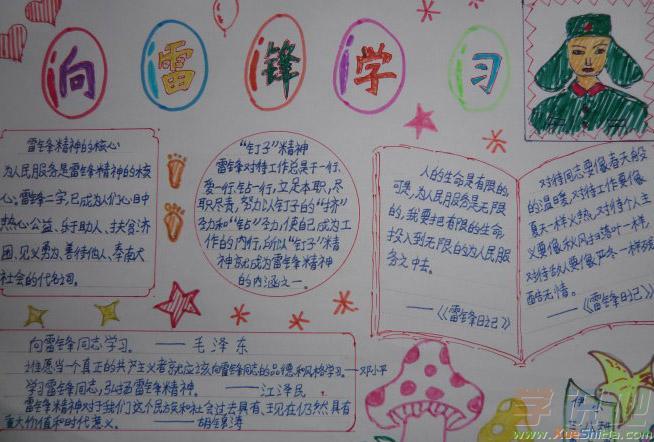 向雷锋学习
雷锋精神的核心
为人民服务是雷锋精神的核
心，雷锋二字，已成为人们心目中
热心公益、乐于助人、扶贫济
困、见义勇为、善待他人、奉献
社会的代名词。
“钉子”精神
雷锋对待工作总是干一行、
爱一行、钻一行，立足本职，尽
职尽责，努力以钉子的“挤”
劲和“钻”劲，使自己成为工
作的内行，所以“钉子”精
神就成为雷锋精神
的内涵之一。
人的生命是有限的，
可是，为人民服务是无限
的，我要把有限的生命，
投入到无限的为人民服
务之中去。
——《雷锋日记》
对待同志要像春天般
的温暖，对待工作要像
夏天一样火热，对待个人主
义要像秋风扫落叶一样，
对待敌人要像严冬一样残
酷无情。
——《雷锋日记》
向雷锋同志学习。——毛泽东
谁愿当一个真正的共产主义者就应该向雷锋同志的品德和风格学习。——邓小平
学习雷锋同志，弘扬雷锋精神。——江泽民
雷锋精神对于我们这个民族和社会过去具有、现在仍然具有
重大价值和时代意义。——胡锦涛
www.XueShiJia.com